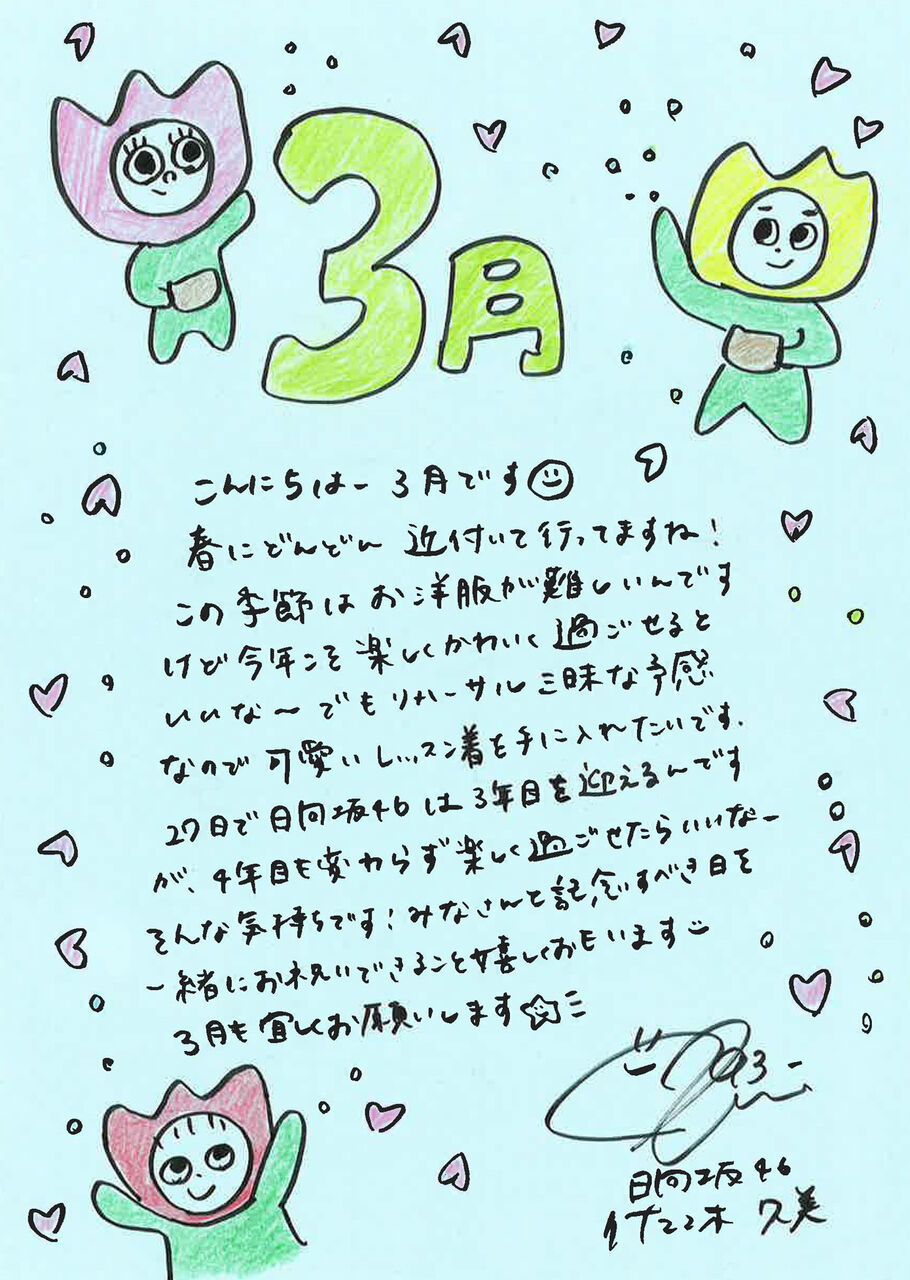 3月
こんにちはー 3月です
春にどんどん 近付いて行ってますね!
この季節はお洋服が難しいんです
けど今年こそ楽しくかわいく過ごせると
いいな〜でもリハーサル三昧な予感
なので可愛いレッスン着を手に入れたいです.
27日で日向坂46は3年目を迎えるんです
が、4年目も変わらず楽しく過ごせたらいいなー
そんな気持ちです!みなさんと記念すべき日を
一緒にお祝いできること嬉しくおもいます
3月も宜しくお願いします
日向坂46
佐々木 久美